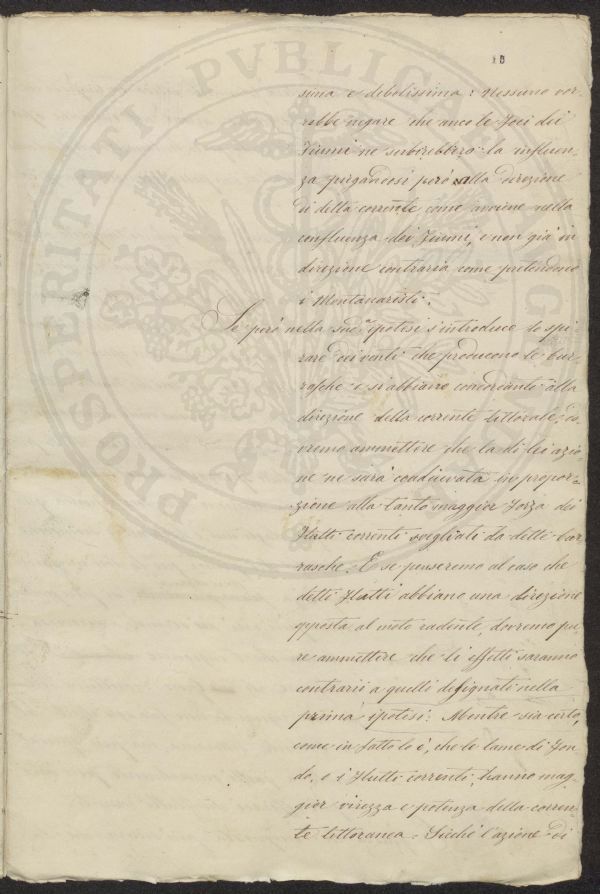 18
sima e debolissima: Nessuno vor-
rebbe negare che anco le Foci dei
Fiumi ne subirebbero la influen-
za piegandosi però alla direzione
di detta corrente come avviene nella
confluenza dei Fiumi, e non già in
direzione contraria come pretendono
i Montanaristi.
Se però nella sud.ª ipotesi s'introduce lo spi-
rare dei venti che producono le bur-
rasche e si abbiano concordanti alla
direzione della corrente littorale, do-
vremo ammettere che la di lei azio
ne ne sarà coadiuvata in propor-
zione alla tanto maggior Forza dei
Flutti correnti svegliati da dette bur-
rasche. E se penseremo al caso che
detti Flutti abbiano una direzione
opposta al moto radente, dovremo pu-
re ammettere che li effetti saranno
contrarii a quelli designati nella
prima ipotesi: Mentre sia certo,
come in fatto lo è, che le lame di Fon-
do, e i Flutti correnti, hanno mag-
gior vivezza e potenza della corren-
te littoranea: Sicché l'azione di
PROSPERITATI PVBLICAE